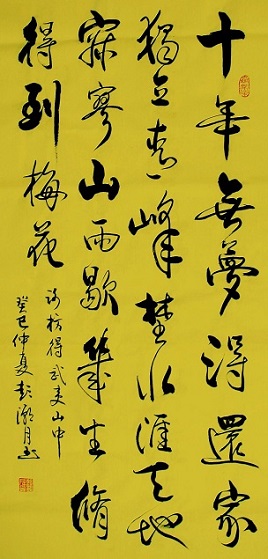 十年無夢得還家
獨立青峰埜水涯天地
寂寥山雨歇幾生脩
得到梅花
谢枋得武夷山中
癸巳仲夏彭月书